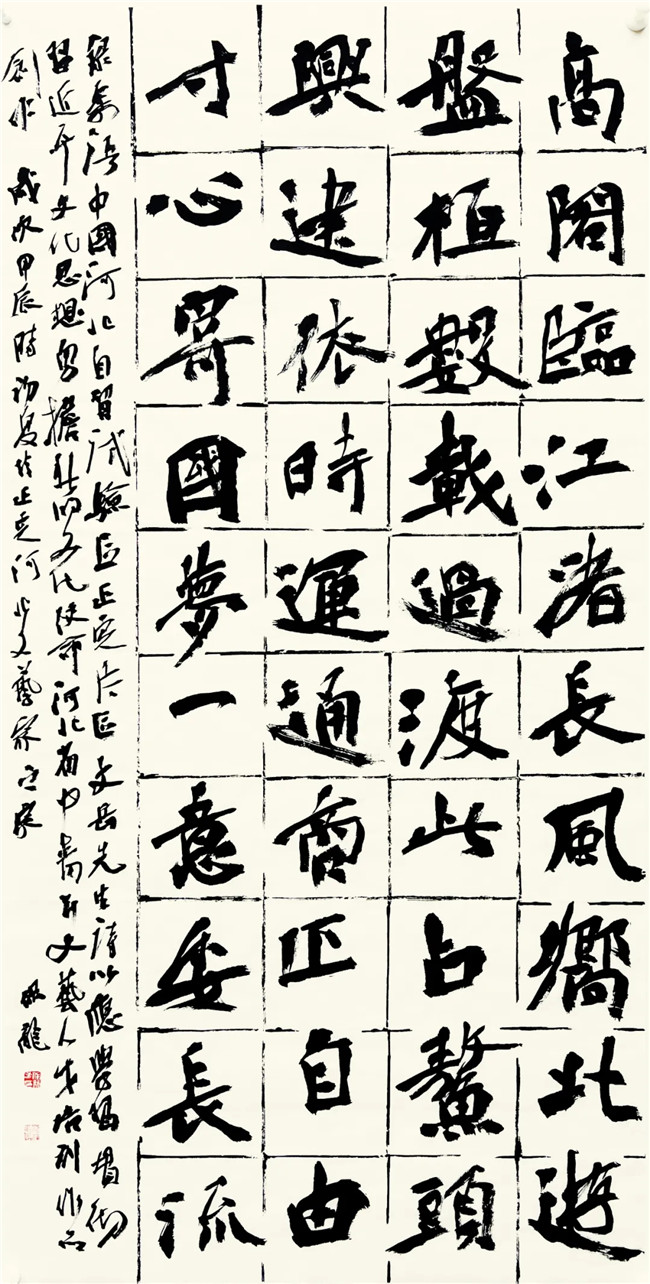 高閣臨江渚長風嚮北遊
盤桓數載過渡此占鰲頭
興建依時運通商正自由
寸心寄國夢一意委長流
中國河北自貿試驗區正定片區文先生詩以應學習貫徹
習近平文化思想勇擔新的文化使命河北省中青年文藝人才培訓作品
創作 歲次甲辰時初夏於正定河北文藝家之家
龍